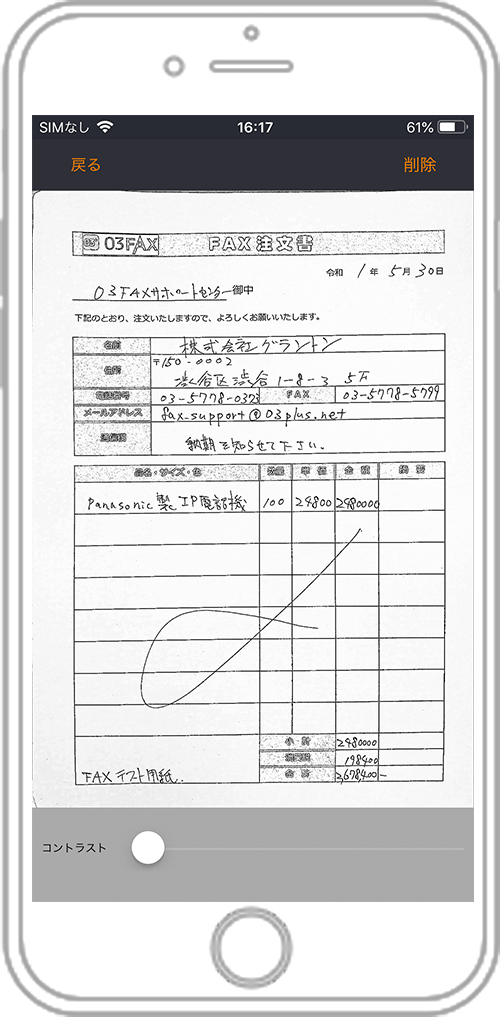 SIMなし 16:17 61%
戻る 削除
03FAX FAX注文書
令和 1年 5月30日
03FAXサポートセンター御中
下記のとおり、注文いたしますので、よろしくお願いいたします。
名前 株式会社グラントン
住所 〒150-0002
渋谷区渋谷 1-8-3 5F
電話番号 03-5778-0373 FAX 03-5778-5799
メールアドレス fax_support@03plus.net
通信欄 納期を知らせて下さい。
品名・サイズ・色 数量 単価 金額 摘要
Panasonic製 IP電話機 100 24800 2480000
小計 2480000
消費税 198400
FAX テスト用紙. 合計 2,678,400-
コントラスト